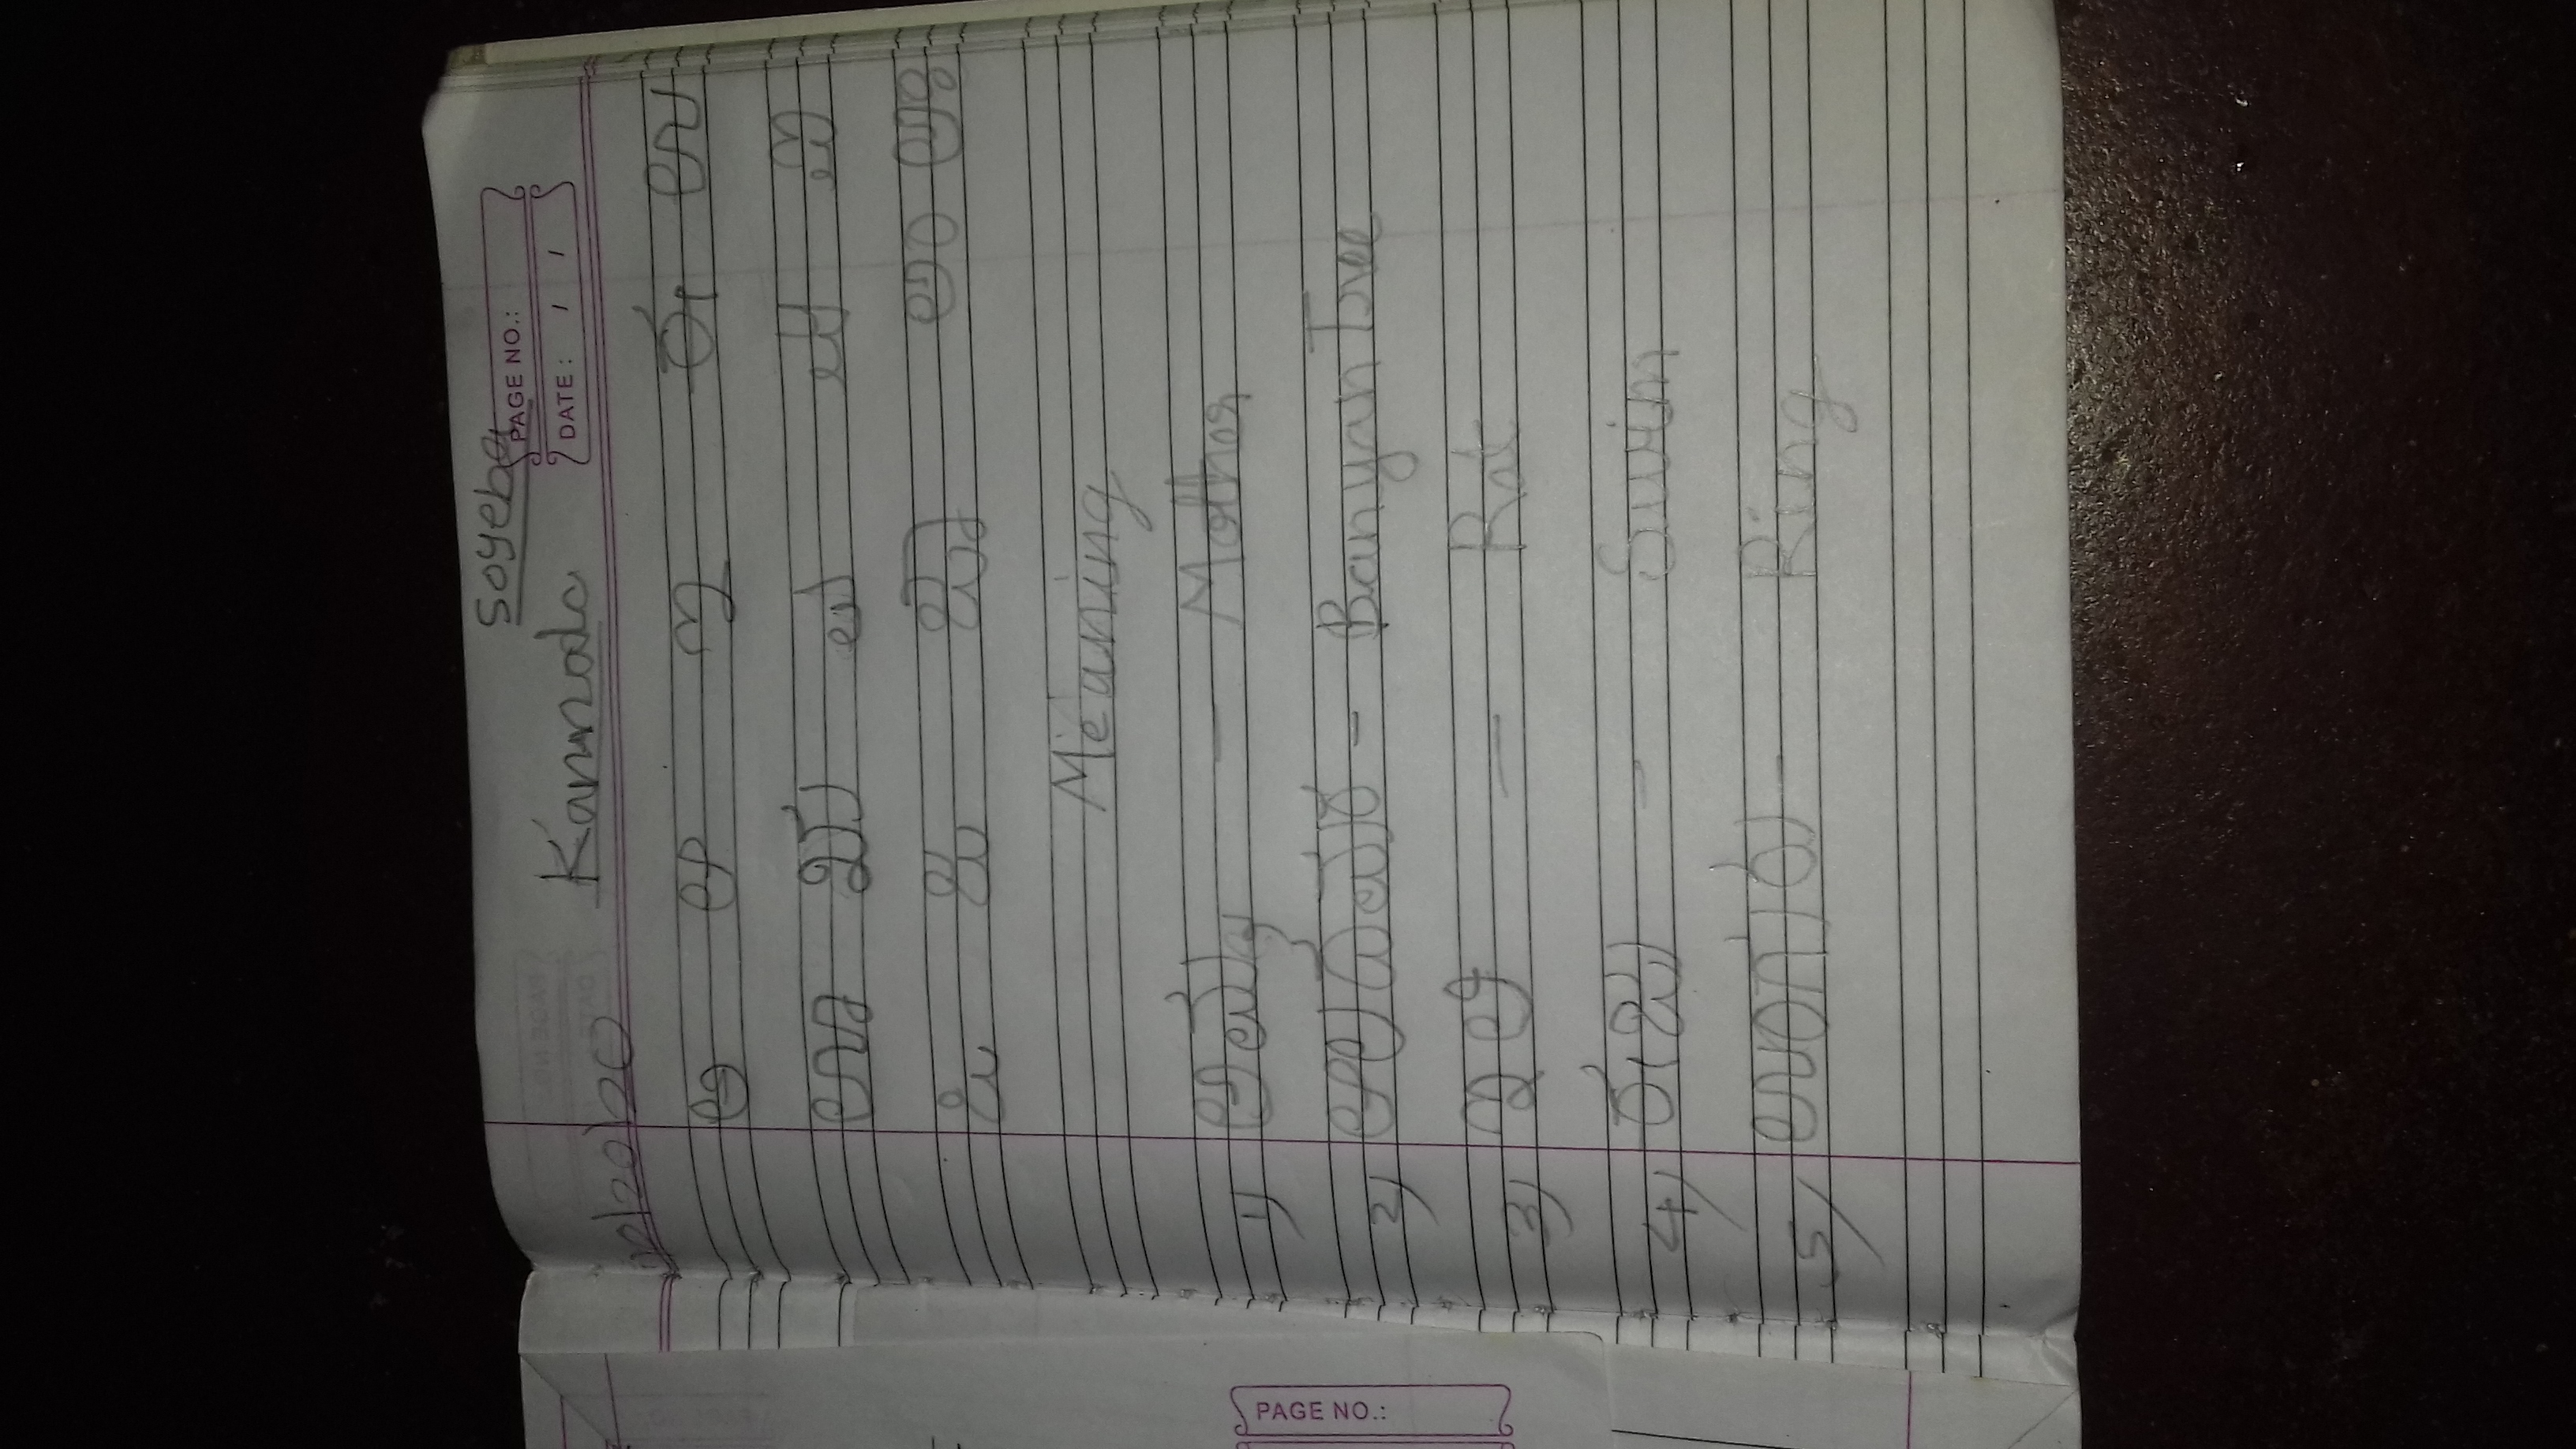 Soyeba
PAGE NO.:
DATE: / /
Kannada
ಅ ಆ ಇ ಈ ಉ
ಊ ಋ ಎ ಏ ಐ
ಒ ಓ ಔ ಅಂ ಅಃ
Meaning
1) ಅಮ್ಮ — Mother
2) ಆಲದಮರ - Banyan Tree
3) ಇಲಿ — Rat
4) ಈಜು - Swim
5) ಉಂಗುರ - Ring
PAGE NO.: